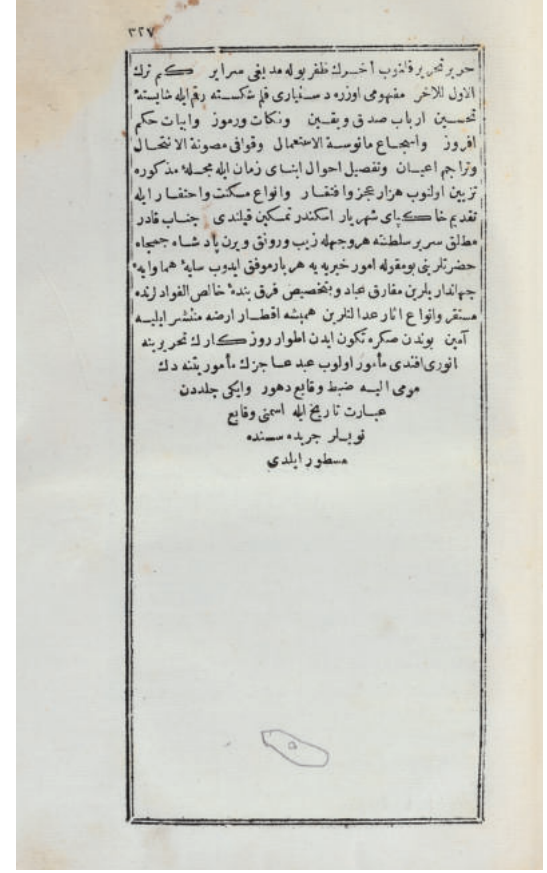 ٣٢٧
حریر تحریر قلنوب آخرك ظفر بوله مدیغی سرایر كم ترك
الاول للاخر مفهومی اوزره دستیاری قلم شكسته رقم ایله شایسته
تحسین ارباب صدق ویقین ونكات ورموز وابیات حكم
افروز واسجاع مأنوسة الاستعمال وقوافی مصونة الانتحال
وتراجم اعیان وتفصیل احوال ابنای زمان ایله مجلۀ مذكوره
تزیین اولنوب هزار عجز وافتقار وانواع مسكنت واحتقار ایله
تقدیم خاكپای شهریار اسكندر تمكین قیلندی جناب قادر
مطلق سریر سلطنته هر وجهله زیب ورونق ویرن پادشاه جمجاه
حضرتلرینی بومقوله امور خیریه یه هر بار موفق ایدوب سایۀ همایوایۀ
جهاندار یلرین مفارق عباد وبتخصیص فرق بندۀ خالص الفوادلرنده
مستقر وانواع اثار عدالتلرین همیشه اقطار ارضه منتشر ایلیه
آمین بوندن صكره تكون ایدن اطوار روزكارك تحریرینه
انوری افندی مأمور اولوب عبد عاجزك مأموریتنه دك
مومی الیه ضبط وقایع دهور وایكی جلددن
عبارت تاریخ ایله اسمنی وقایع
نویسلر جریده سنده
مسطور ایلدی